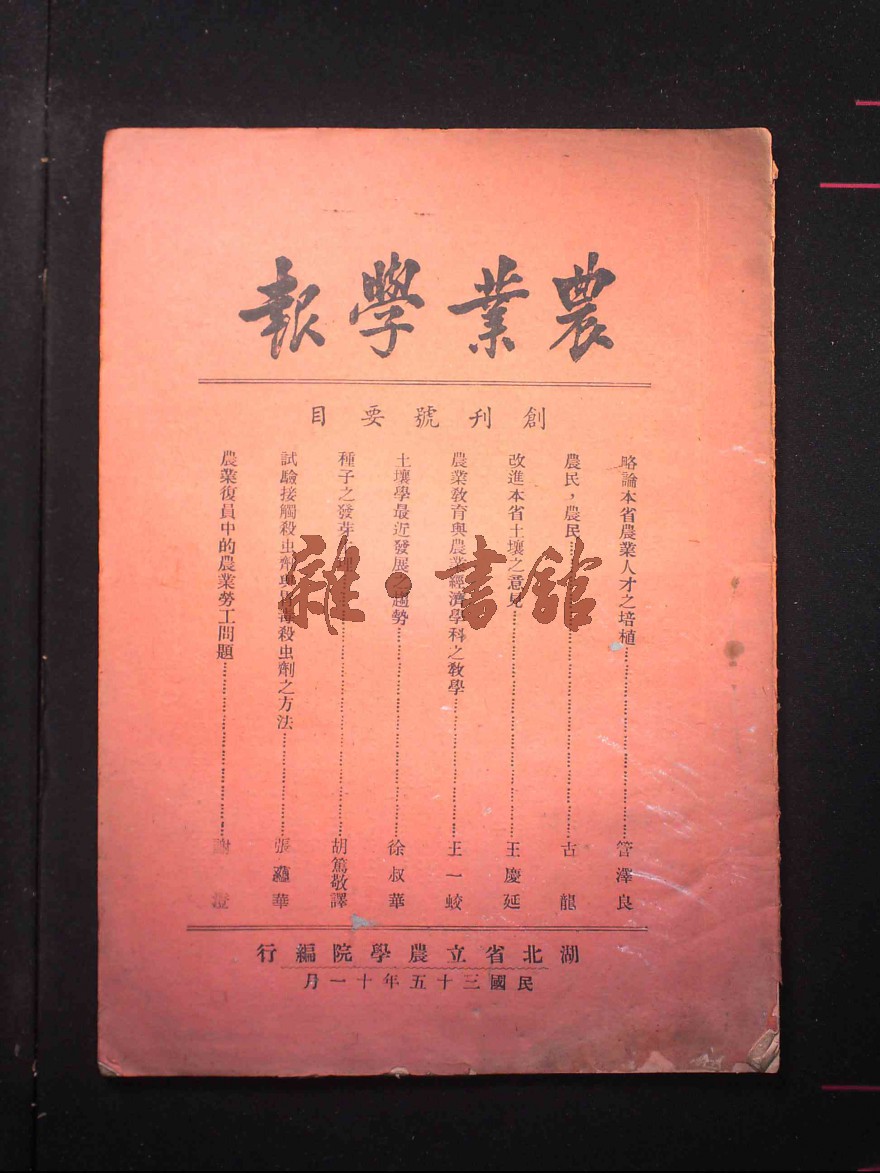 農業學報
創刊號要目
略論本省農業人才之培植……管澤良
農民，農民……古龍
改進本省土壤之意見……王慶延
農業教育與農業經濟學科之教學……王一蛟
土壤學最近發展之趨勢……徐叔華
種子之發芽……胡篤敬譯
試驗接觸殺虫劑與胃毒殺虫劑之方法……張華
農業復員中的農業勞工問題……謝澄
湖北省立農學院編行
民國三十五年十一月
雜·書館